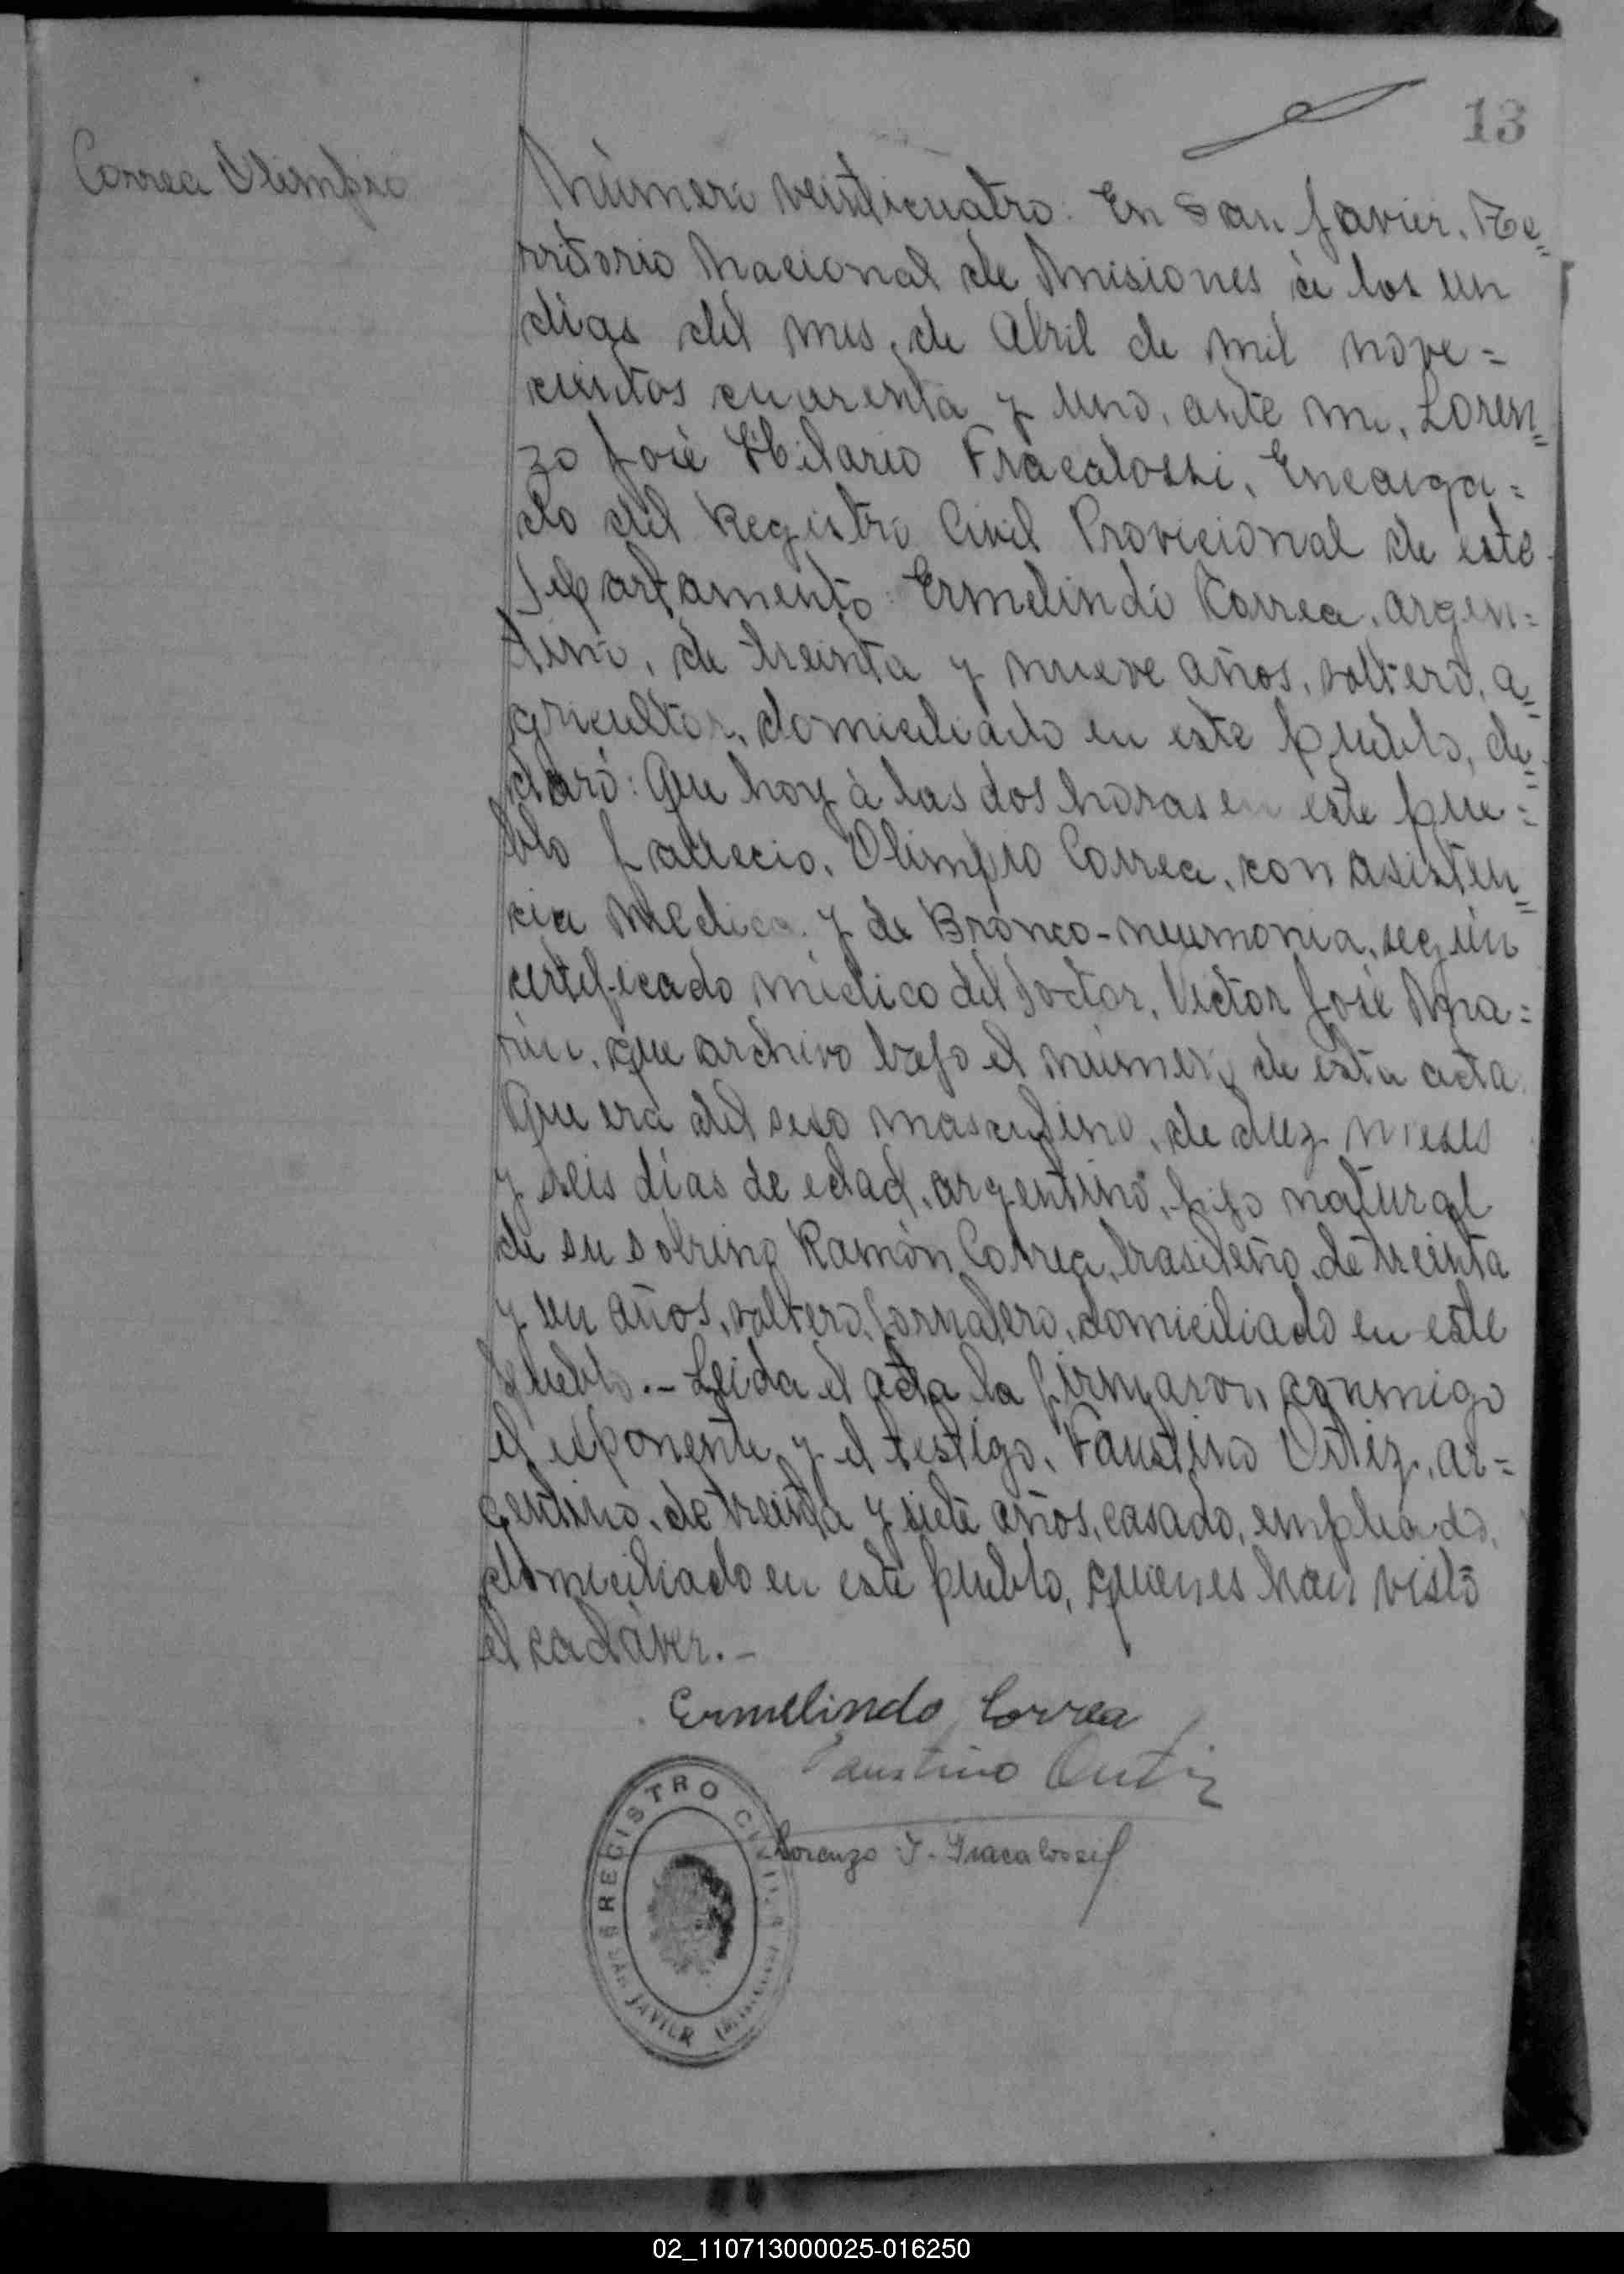 13
Correa Olimpio
Número veinticuatro. En San Javier, Te=
rritorio Nacional de Misiones à los un
días del mes, de Abril de mil nove=
cientos cuarenta y uno, ante mi, Loren=
zo José Hilario Fracalossi, Encarga=
do del Registro Civil Provicional de este
Departamento: Ermelindo Correa, argen=
tino, de treinta y nueve años, soltero, a=
gricultor, domiciliado en este pueblo, de=
claró: Que hoy à las dos horas en este pue=
blo fallecio, Olimpio Correa, con asisten=
cia Medica y de Bronco-neumonia, según
certificado médico del Doctor, Victor José
que archivo bajo el número de esta acta.
Que era del sexo masculino, de diez meses
y seis días de edad, argentino, hijo natural
de su sobrino Ramón Correa, brasileño, de treinta
y un años, soltero, jornalero, domiciliado en este
pueblo.- Leida el acta la firmaron conmigo
el exponente y el testigo, Faustino Ortiz, ar=
gentino, de treinta y siete años, casado, empleado,
domiciliado en este pueblo, quienes han visto
el cadáver.-
Ermelindo Correa
Faustino Ortiz
Lorenzo J. Fracalossi
REGISTRO CIVIL
SAN JAVIER
02_110713000025-016250